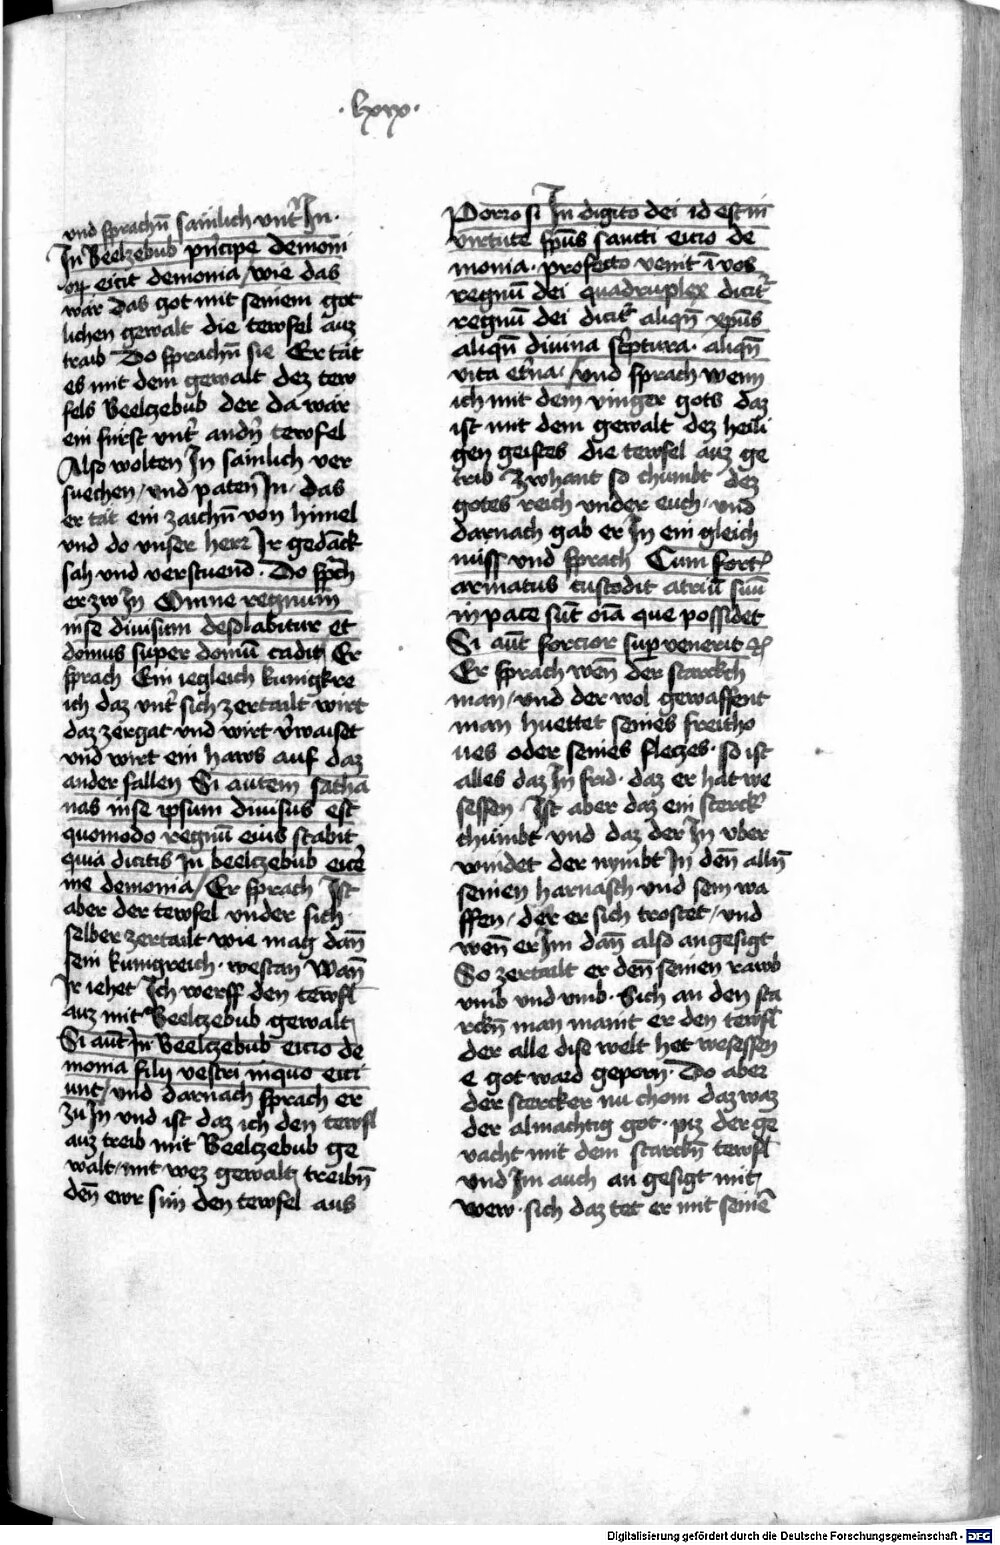 ·lxxx·
und sprachn̄ sainlich unt̾ In·
In Beelzebub prīcipe demoni
orꝝ eicit demonia / wie das
wär das got mit seinem got
lichen gewalt die tewfel auz
traib Do sprachn̄ sie Er tät
es mit dem gewalt dez tew
fels Beelczebub der da wär
ein fürst unt̾ andn̄ tewfel
Also wolten In sainlich ver
suechen / und paten In / das
er tät ein zaichn̄ von himel
und do unser herr Ir gedäck
sah und verstuend · Do sp̄ch
er zw In Omne regnum
in se divisum desolabitur et
domus super domū cadit Er
sprach Ein iegleich kunigkre
ich daz unt̾ sich zertailt wirt
daz zergat und wirt v̾waiset
und wirt ein haws auf daz
ander fallen Si autem satha
nas in se ipsum divisus est
quomodo regnū eius stabit
quia dicitis in beelczebub eice̾
me demonia / Er sprach Ist
aber der tewfel under sich
selber zertailt wie mag dan̄
sein kunigreich · westan Wan̄
Ir iehet Ich werff den tewfl
auz mit Beelczebub gewalt
Si aūt In Beelczebub eicio de
monia filij vestri in quo eici
unt / und darnach sprach er
zu In und ist daz ich den tewfl
auz treib mit Beelczebub ge
walt / mit wez gewalt treibn̄
den̄ ewr sun den tewfel aus
Porro si In digito dei id est in
virtute sp̄us sancti eicio de
monia · profecto venit ī vos
regnū dei quadruplex dicit̾
regnū dei dicit̾ aliqn̄ xp̄us
aliqn̄ divina sc̾ptura · aliqn̄
vita et̾na · / Und sprach wenn
ich mit dem vinger gots daz
ist mit dem gewalt dez heili
gen geistes die tewfel auz ge
trib Zwhant so chumbt dez
gotes reich under euch / und
darnach gab er In ein gleich
nüss und sprach Cum fort̾
armatus custodit atriū suū
in pace sūt oīa que possidet
Si aūt forcior sup venerit ⁊c̾
Er sprach wen̄ der starckch
man / und der wol gewaffent
man huettet seines freitho
ves oder seines fleczes · so ist
alles daz In frid · daz er hat we
sessen Ist aber daz ein sterck̾
chumbt und daz der In uber
windet der nymbt In den̄ alln̄
seinen harnasch und sein wa
ffen / der er sich trostet / und
wen̄ er Im dan̄ also angesigt
So zertailt er den̄ seinen rawb
umb und umb · Sich an den sta
rckn̄ man maint er den tewfl
der alle dise welt het wesessen
e got ward geporn · Do aber
der stercker nu chom daz waz
der almächtig got · piz der ge
vacht mit dem starckn̄ tewfl
und Im auch an gesigt mit
wew · sich daz tet er mit seinē
Digitalisierung gefördert durch die Deutsche Forschungsgemeinschaft - DFG